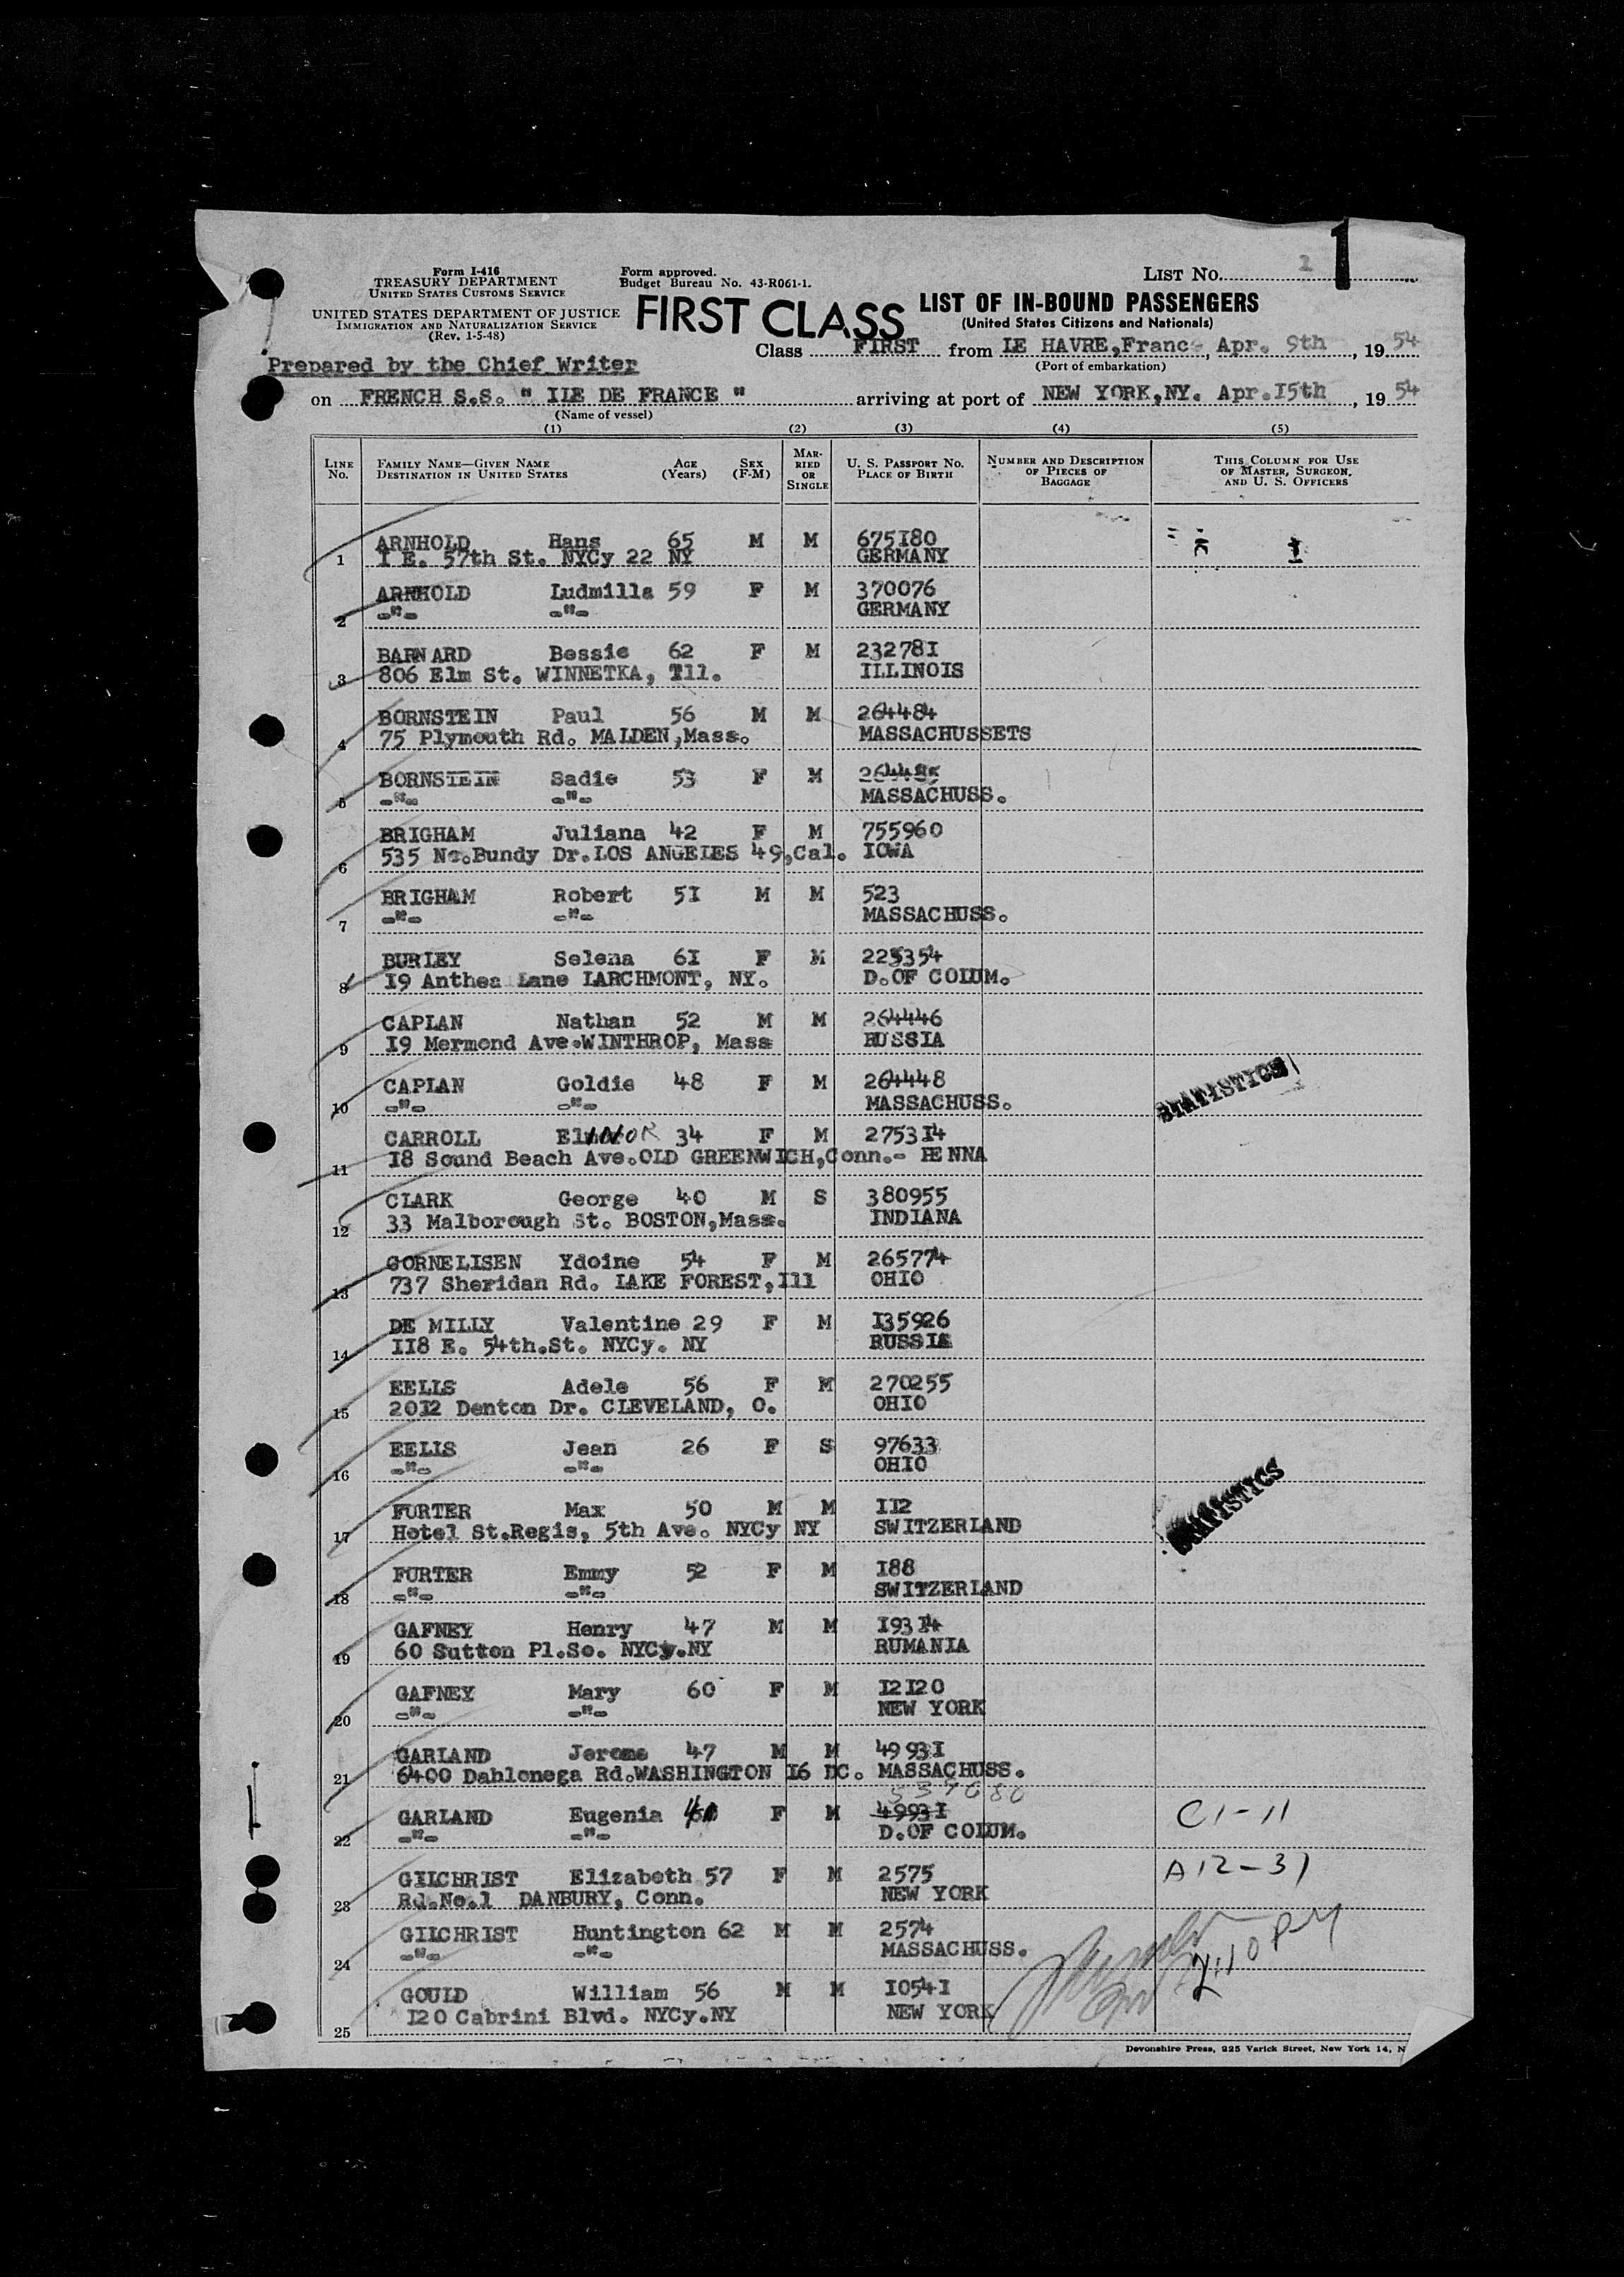 1
LIST No. 1
Form I-416
TREASURY DEPARTMENT
UNITED STATES CUSTOMS SERVICE
UNITED STATES DEPARTMENT OF JUSTICE
IMMIGRATION AND NATURALIZATION SERVICE
(Rev. 1-5-48)
Form approved.
Budget Bureau No. 43-R061-1.
FIRST CLASS
LIST OF IN-BOUND PASSENGERS
(United States Citizens and Nationals)
Class FIRST from LE HAVRE,Franc , Apr. 9th , 19 54
(Port of embarkation)
Prepared by the Chief Writer
on FRENCH S.S. " ILE DE FRANCE " arriving at port of NEW YORK,NY. Apr.I5th , 19 54
(Name of vessel)
(1) (2) (3) (4) (5)
LINE No. FAMILY NAME—GIVEN NAME DESTINATION IN UNITED STATES AGE (Years) SEX (F-M) MARRIED OR SINGLE U. S. PASSPORT No. PLACE OF BIRTH NUMBER AND DESCRIPTION OF PIECES OF BAGGAGE THIS COLUMN FOR USE OF MASTER, SURGEON, AND U. S. OFFICERS
ARNHOLD Hans 65 M M 675I80
1 I E. 57th St. NYCy 22 NY GERMANY
ARNHOLD Ludmilla 59 F M 370076
2 -"- -"- GERMANY
BARNARD Bessie 62 F M 23278I
3 806 Elm St. WINNETKA, Ill. ILLINOIS
BORNSTEIN Paul 56 M M 264484
4 75 Plymouth Rd. MALDEN,Mass. MASSACHUSSETS
BORNSTEIN Sadie 53 F M 264485
5 -"- -"- MASSACHUSS.
BRIGHAM Juliana 42 F M 755960
6 535 No.Bundy Dr.LOS ANGELES 49,Cal. IOWA
BRIGHAM Robert 5I M M 523
7 -"- -"- MASSACHUSS.
BURLEY Selena 6I F M 225354
8 I9 Anthea Lane LARCHMONT, NY. D.OF COLUM.
CAPLAN Nathan 52 M M 264446
9 I9 Mermond Ave.WINTHROP, Mass RUSSIA
CAPLAN Goldie 48 F M 264448
10 -"- -"- MASSACHUSS.
STATISTICS
CARROLL ElINOR 34 F M 2753I4
11 I8 Sound Beach Ave.OLD GREENWICH,Conn.- PENNA
CLARK George 40 M S 380955
12 33 Malborough St. BOSTON,Mass. INDIANA
CORNELISEN Ydoine 54 F M 265774
13 737 Sheridan Rd. LAKE FOREST,Ill OHIO
DE MILLY Valentine 29 F M I35926
14 II8 E. 54th.St. NYCy. NY RUSSIA
EELLS Adele 56 F M 270255
15 20I2 Denton Dr. CLEVELAND, O. OHIO
EELLS Jean 26 F S 97633
16 -"- -"- OHIO
FURTER Max 50 M M II2
17 Hotel St.Regis, 5th Ave. NYCy NY SWITZERLAND
STATISTICS
FURTER Emmy 52 F M I88
18 -"- -"- SWITZERLAND
GAFNEY Henry 47 M M I93I4
19 60 Sutton Pl.So. NYCy.NY RUMANIA
GAFNEY Mary 60 F M I2I20
20 -"- -"- NEW YORK
GARLAND Jerome 47 M M 4993I
21 6400 Dahlonega Rd.WASHINGTON I6 DC. MASSACHUSS.
GARLAND Eugenia F M 4993I C1-11
22 -"- -"- D.OF COLUM.
GILCHRIST Elizabeth 57 F M 2575 A12-31
23 Rd.No.1 DANBURY, Conn. NEW YORK
GILCHRIST Huntington 62 M M 2574
24 -"- -"- MASSACHUSS. 2:10 PM
GOULD William 56 M M I054I
25 I20 Cabrini Blvd. NYCy.NY NEW YORK
Devonshire Press, 225 Varick Street, New York 14, N